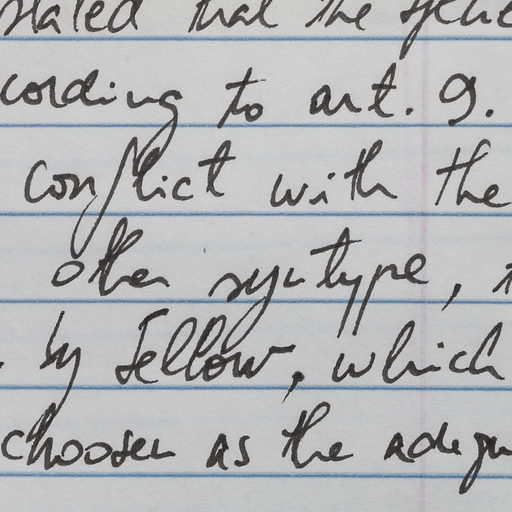 stated that the
cording to art. 9.
conflict with the
other syntype,
by Fellow, which
choosen as the